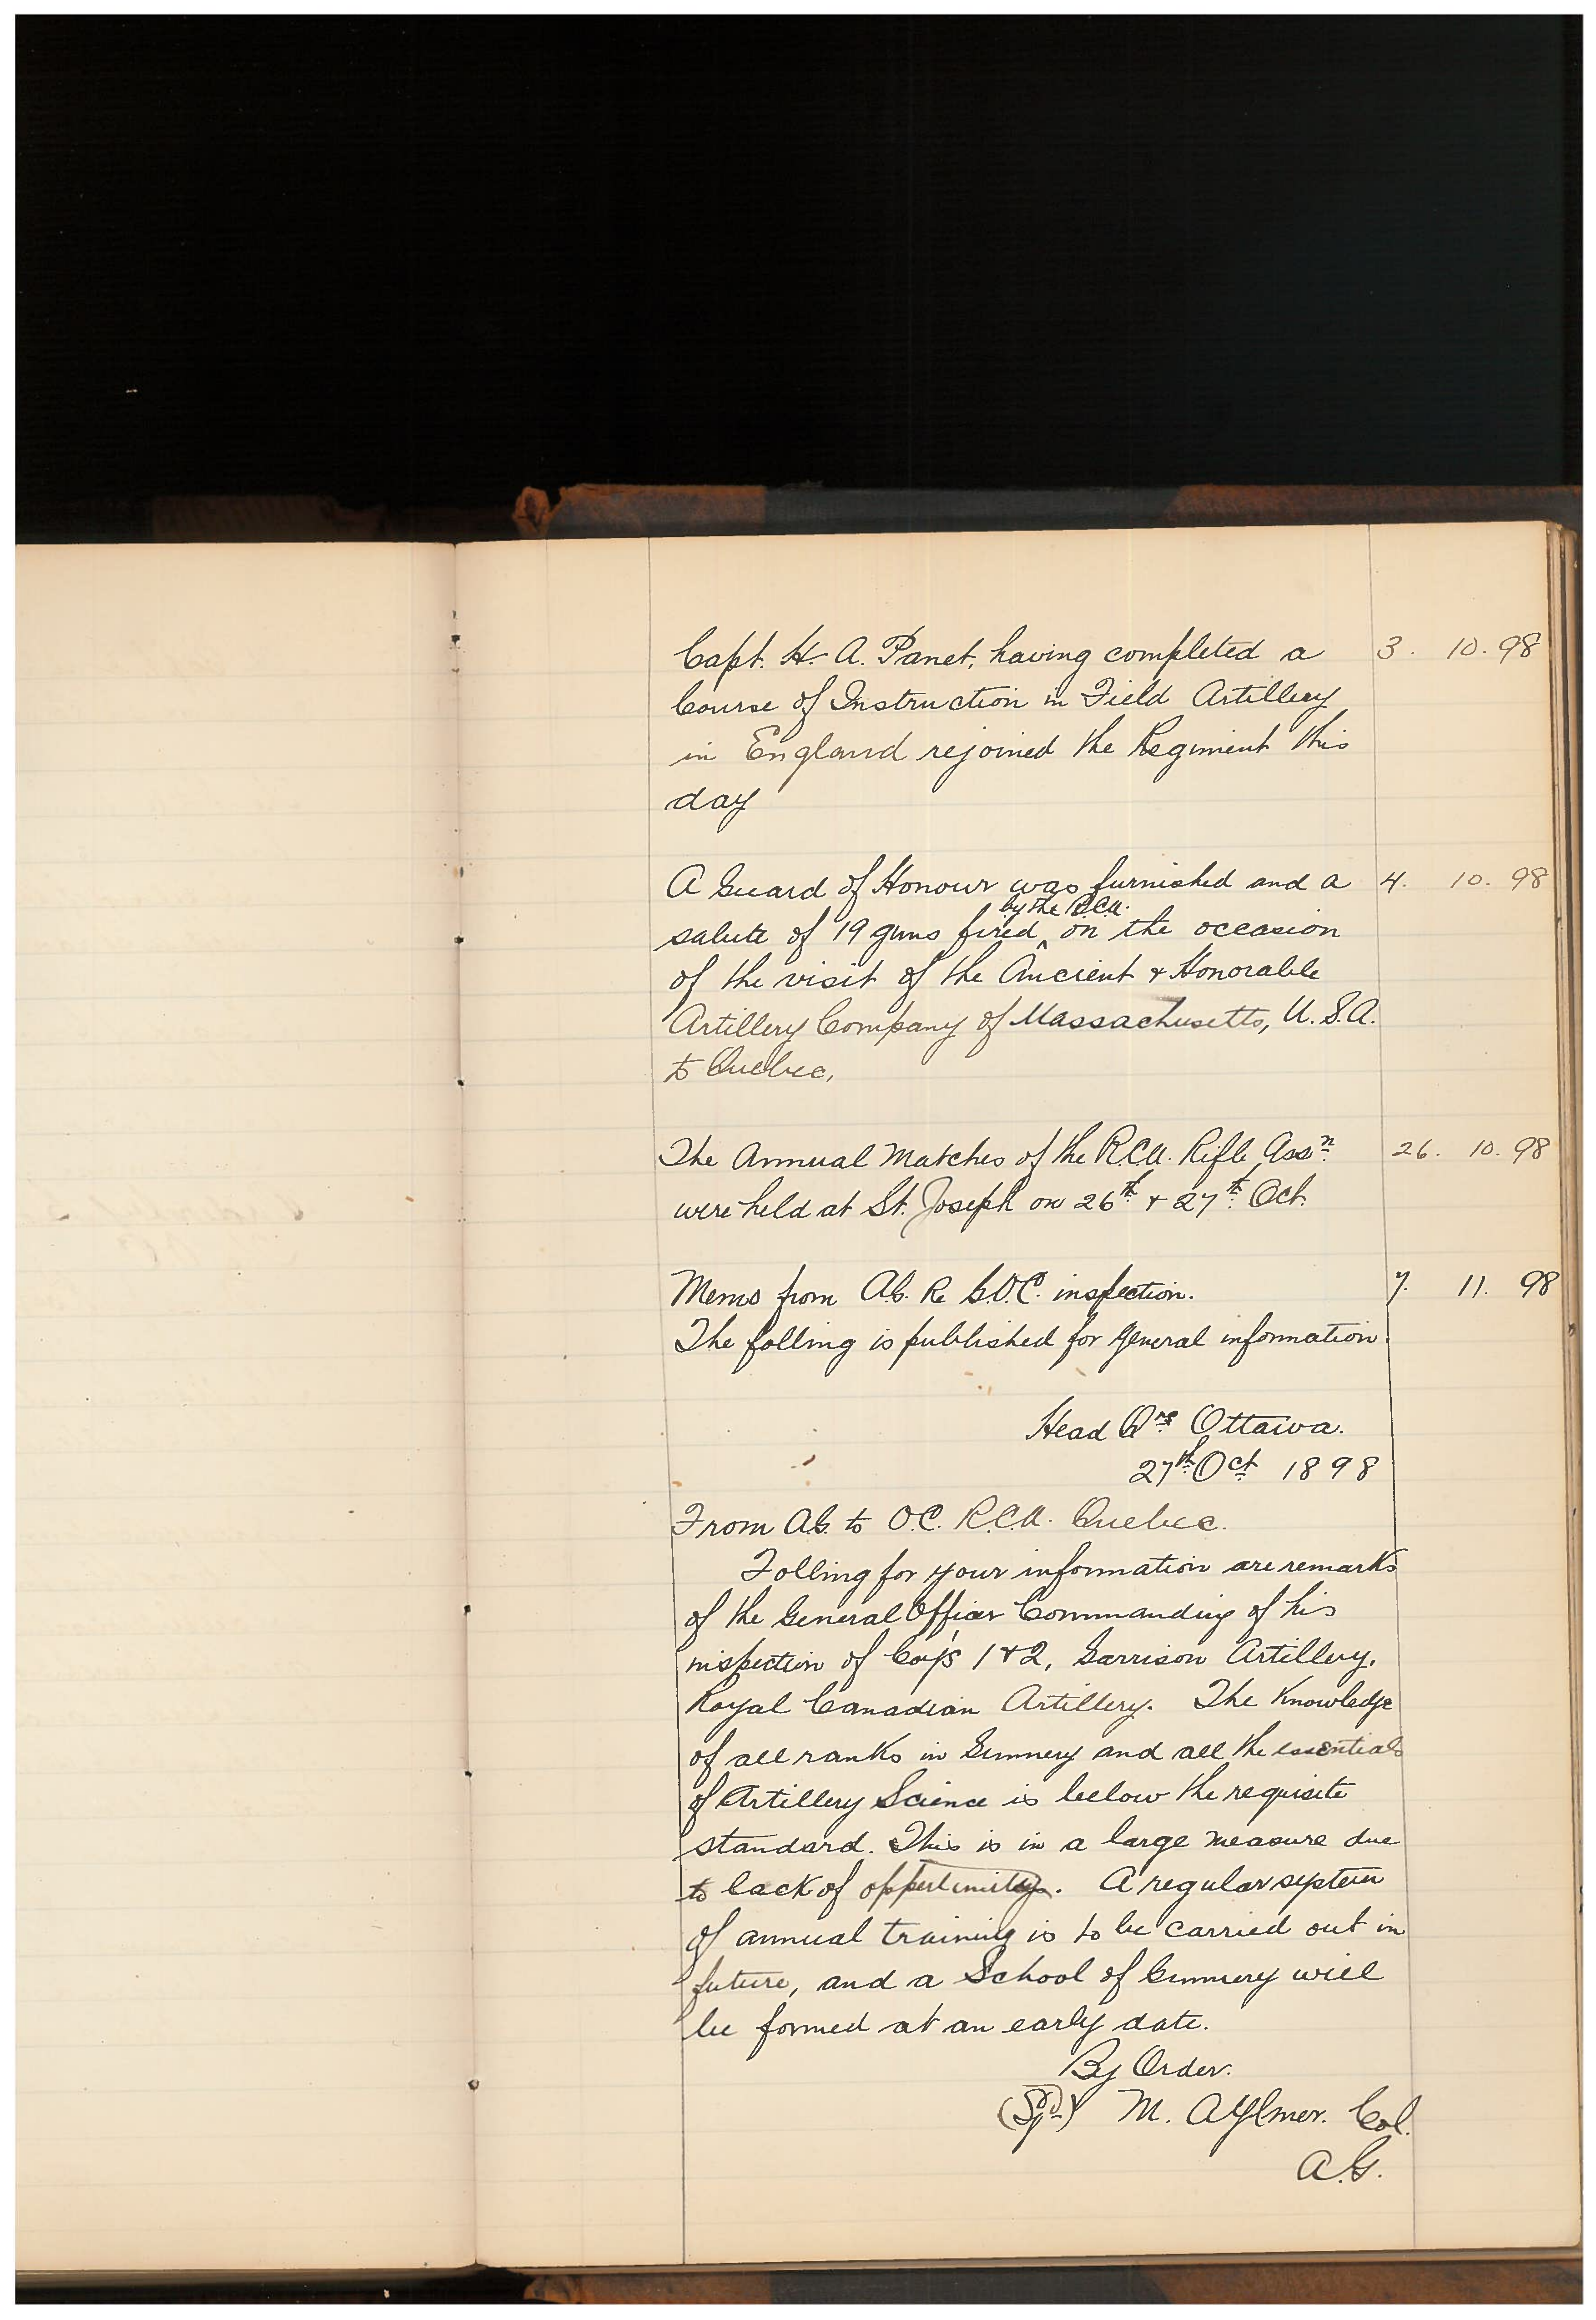 Capt. H. A. Panet, having completed a 3. 10. 98
Course of Instruction in Field Artillery
in England rejoined the Regiment this
day
A Guard of Honour was furnished and a 4. 10. 98
by the R.C.A.
salute of 19 guns fired ^ on the occasion
of the visit of the Ancient & Honorable
Artillery Company of Massachusetts, U.S.A.
to Quebec,
The Annual Matches of the R.C.A. Rifle Assn. 26. 10. 98
were held at St. Joseph on 26th & 27th Oct.
Memo from A.G. Re G.O.C. inspection. 7. 11. 98
The folling is published for general information.
Head Qrs Ottawa.
27th Oct 1898
From A.G. to O.C. R.C.A. Quebec.
Folling for your information are remarks
of the General Officer Commanding of his
inspection of Coy's 1 & 2, Garrison Artillery,
Royal Canadian Artillery. The Knowledge
of all ranks in Gunnery and all the essentials
of Artillery Science is below the requisite
standard. This is in a large measure due
to lack of opportunity. A regular system
of annual training is to be carried out in
future, and a School of Gunnery will
be formed at an early date.
By Order.
(Sgd) M. Aylmer. Col.
A.G.